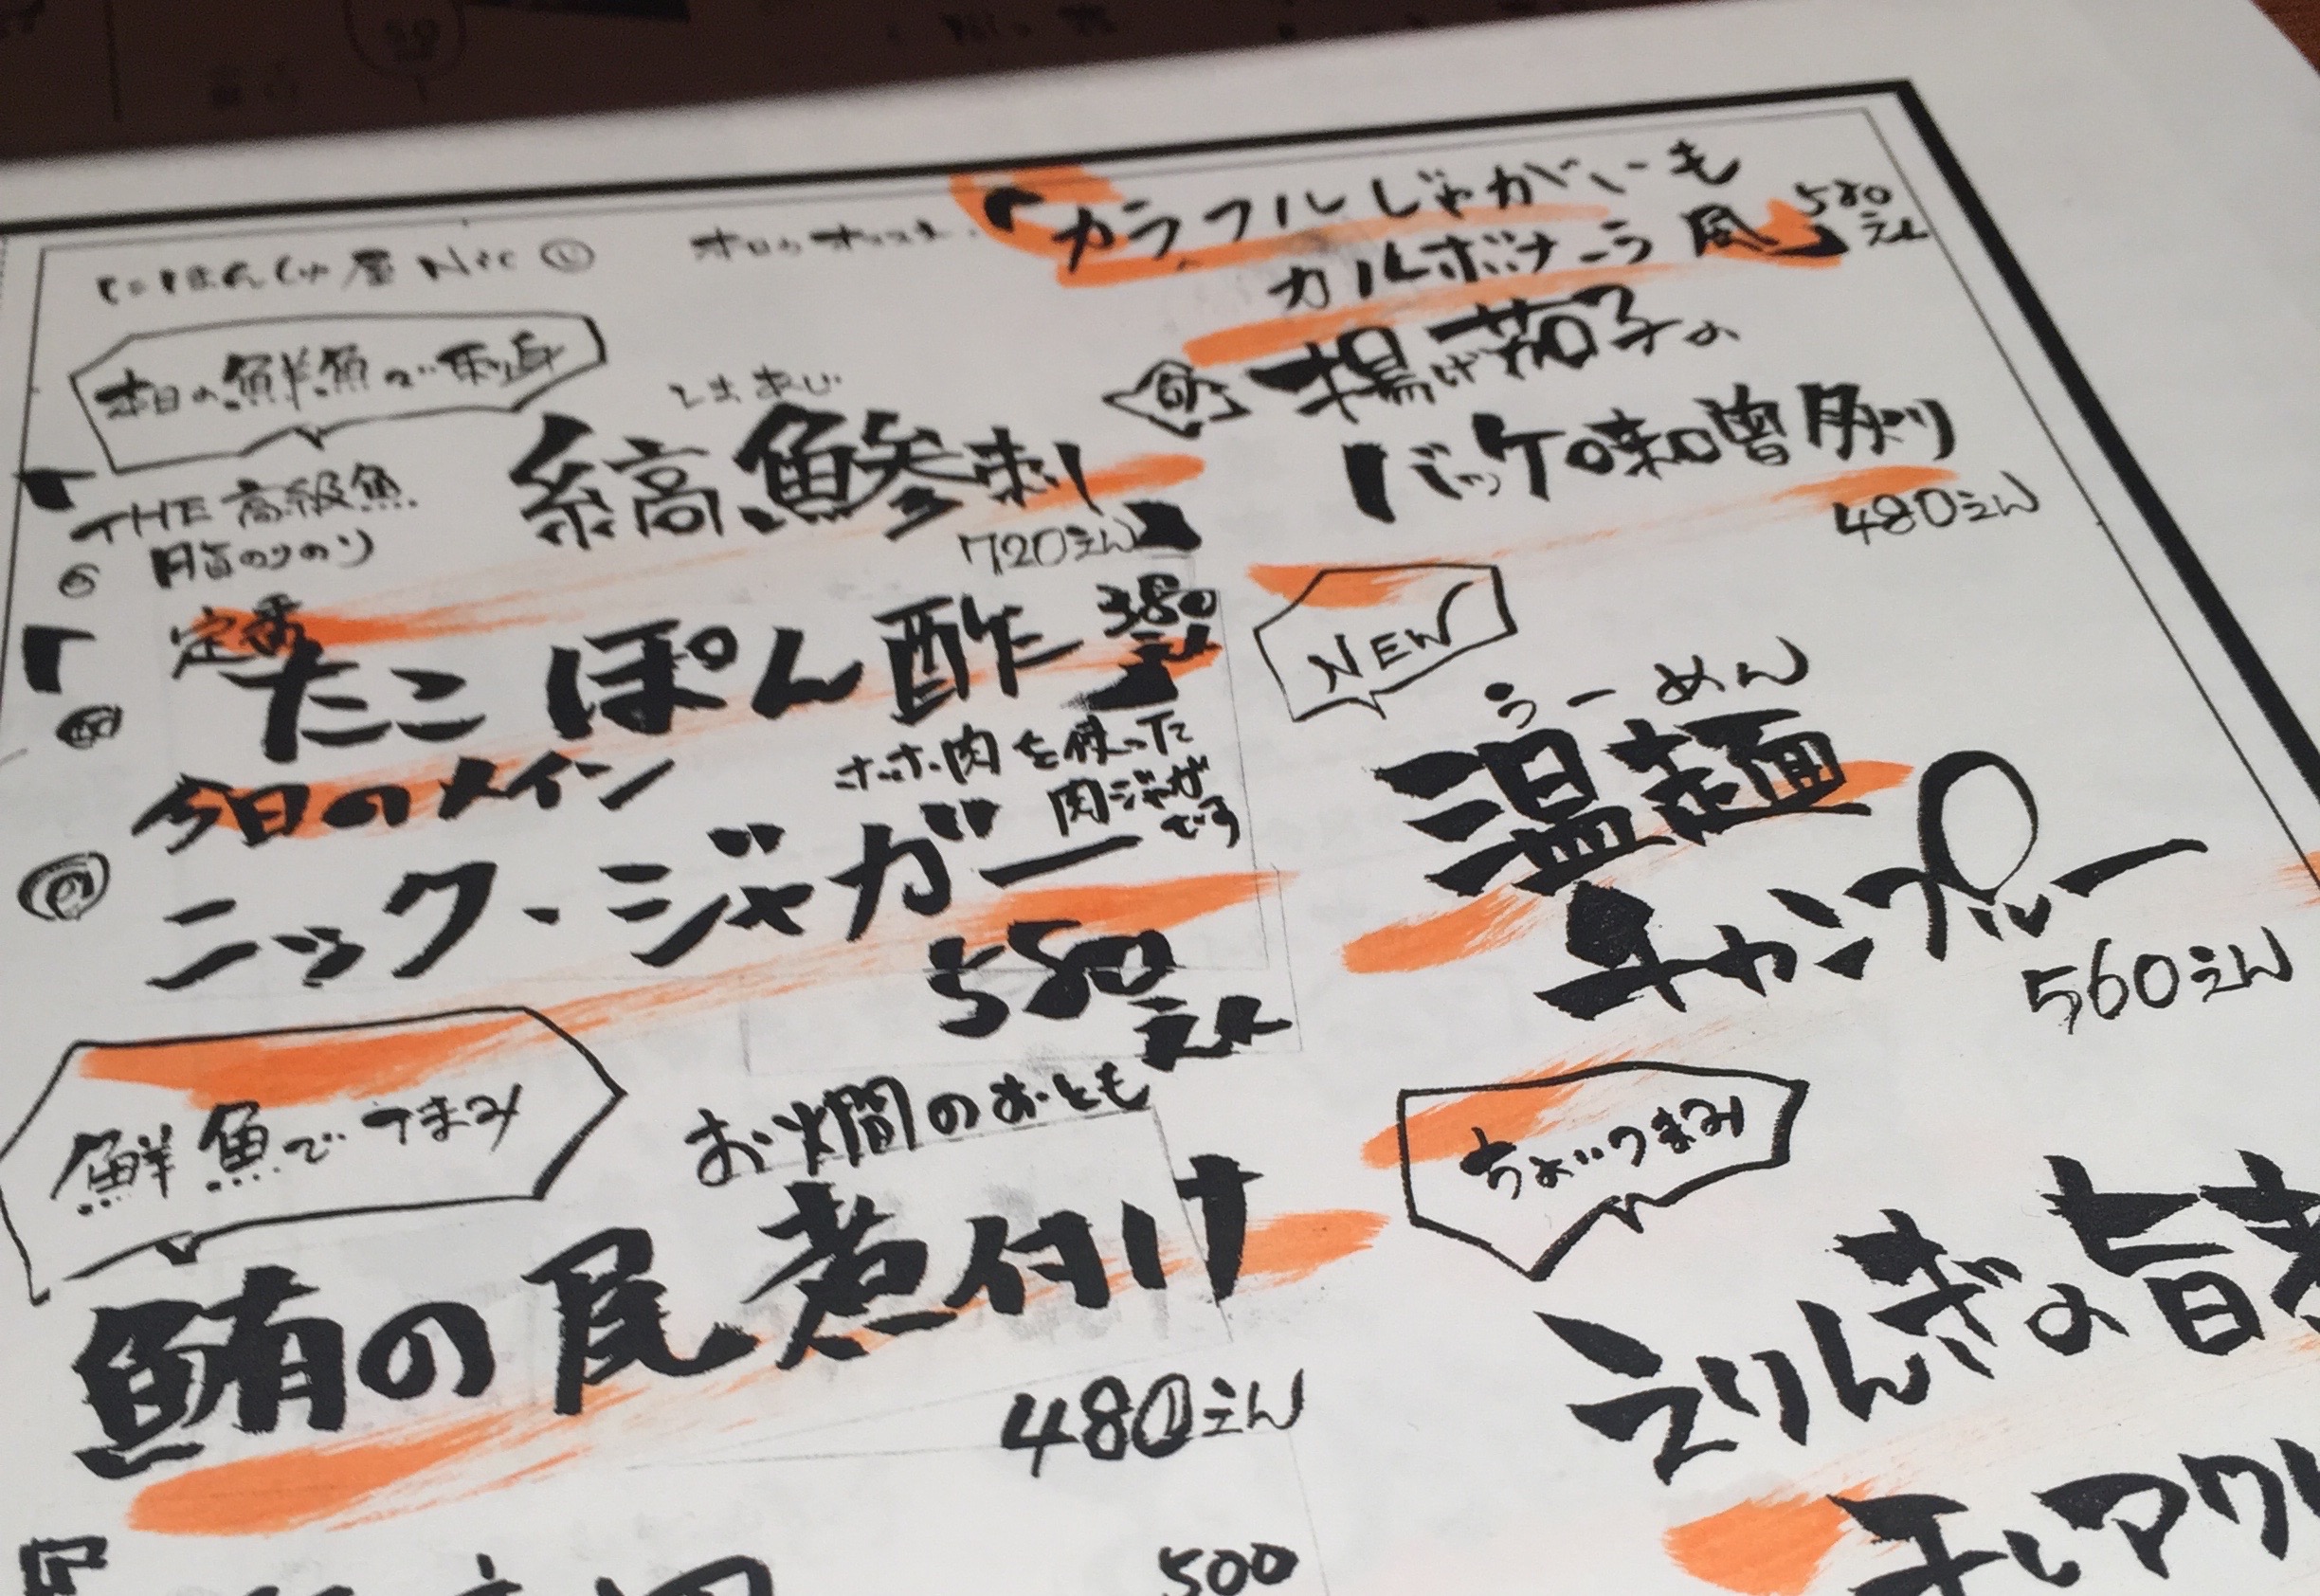 本日の鮮魚で刺身
THE 高級魚
脂のりのり
しまあじ
縞鯵刺
720えん
定番
たこぽん酢
380えん
今日のメイン
ホホ肉を使った
肉じゃが
です
ニック・ジャガー
580えん
鮮魚でつまみ
お燗のおとも
鮪の尾煮付け
480えん
500
カラフルじゃがいも
カルボナーラ風
580えん
揚げ茄子の
バッケ味噌
480えん
NEW
うーめん
温麺
チャンプルー
560えん
ちょいつまみ
えりんぎの旨煮